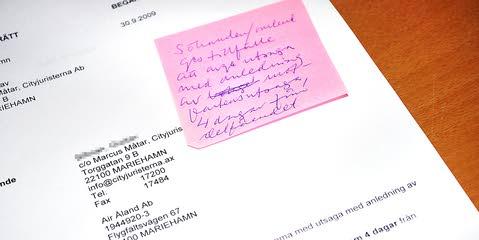 BEGÄ
30.9.2009
RÄTT
Mátar, Cityjuristerna Ab
B
RIEHAMN
ges tillfälle
att avge utsaga
med anledning
av mot-
partens utsaga,
4 dagar från
delfåendet
c/o Marcus Mátar, Cityjuris
Torggatan 9 B
22100 MARIEHAMN
info@cityjuristerna.ax
Tel: 17200
Fax 17484
nde
Air Åland Ab
1944920-3
Flygfältsvägen 67
erna med utsaga med anledning av
m 4 dagar från